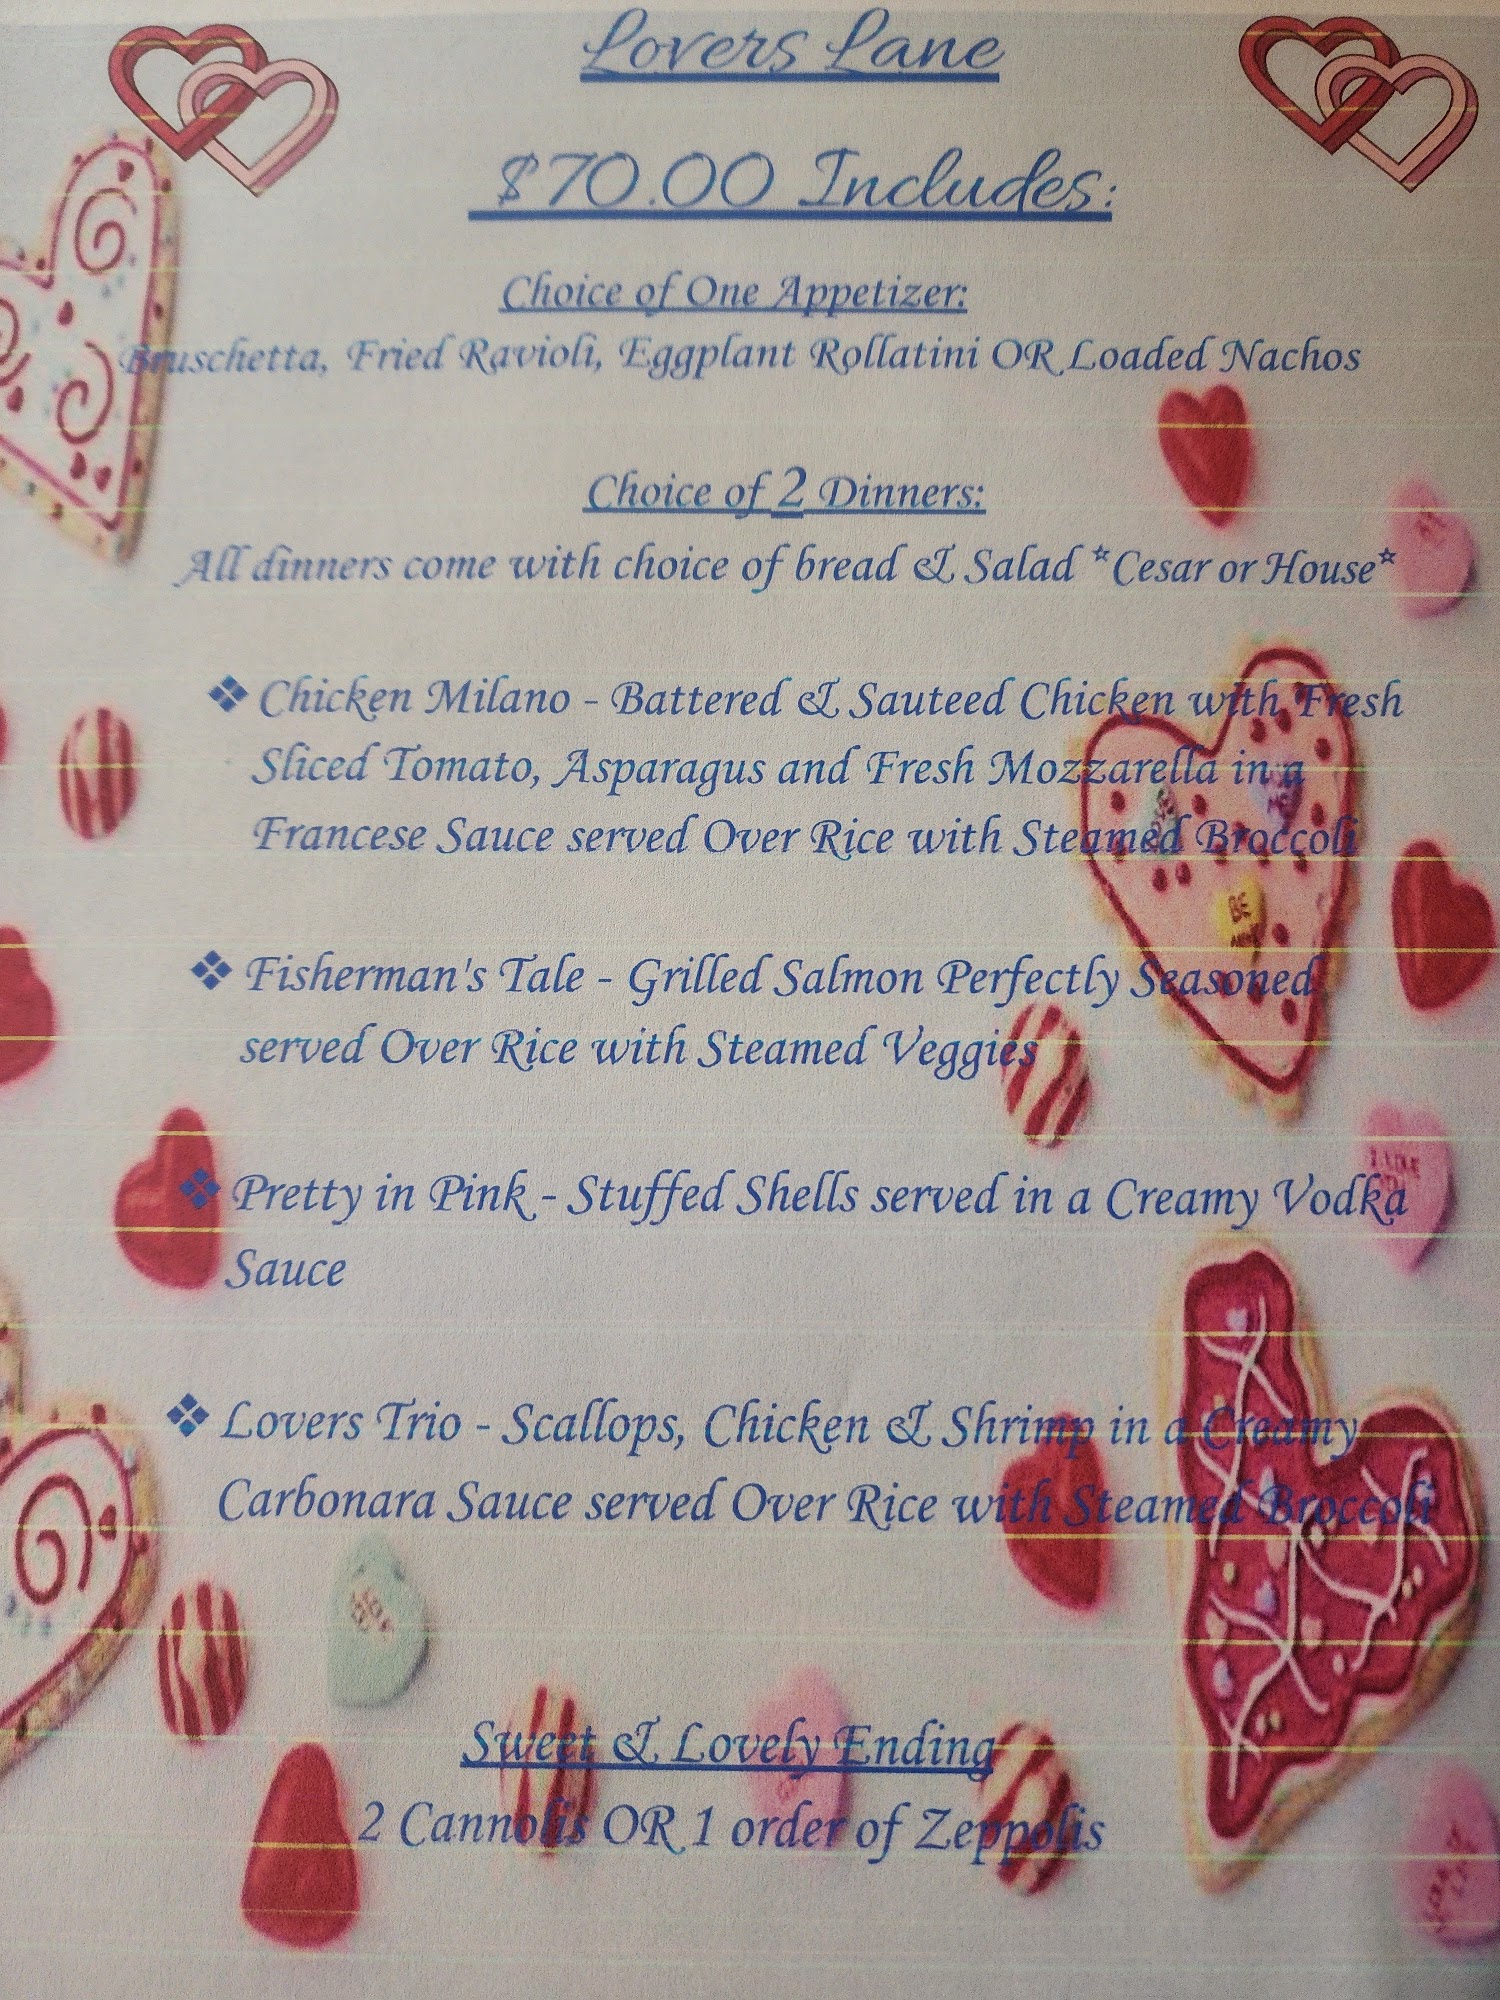 Lovers Lane
$70.00 Includes:
Choice of One Appetizer:
Bruschetta, Fried Ravioli, Eggplant Rollatini OR Loaded Nachos
Choice of 2 Dinners:
All dinners come with choice of bread & Salad *Cesar or House*
❖ Chicken Milano - Battered & Sauteed Chicken with Fresh
Sliced Tomato, Asparagus and Fresh Mozzarella in a
Francese Sauce served Over Rice with Steamed Broccoli
BE
❖ Fisherman's Tale - Grilled Salmon Perfectly Seasoned
served Over Rice with Steamed Veggies
❖ Pretty in Pink - Stuffed Shells served in a Creamy Vodka
Sauce
❖ Lovers Trio - Scallops, Chicken & Shrimp in a Creamy
Carbonara Sauce served Over Rice with Steamed Broccoli
Sweet & Lovely Ending
2 Cannolis OR 1 order of Zeppolis